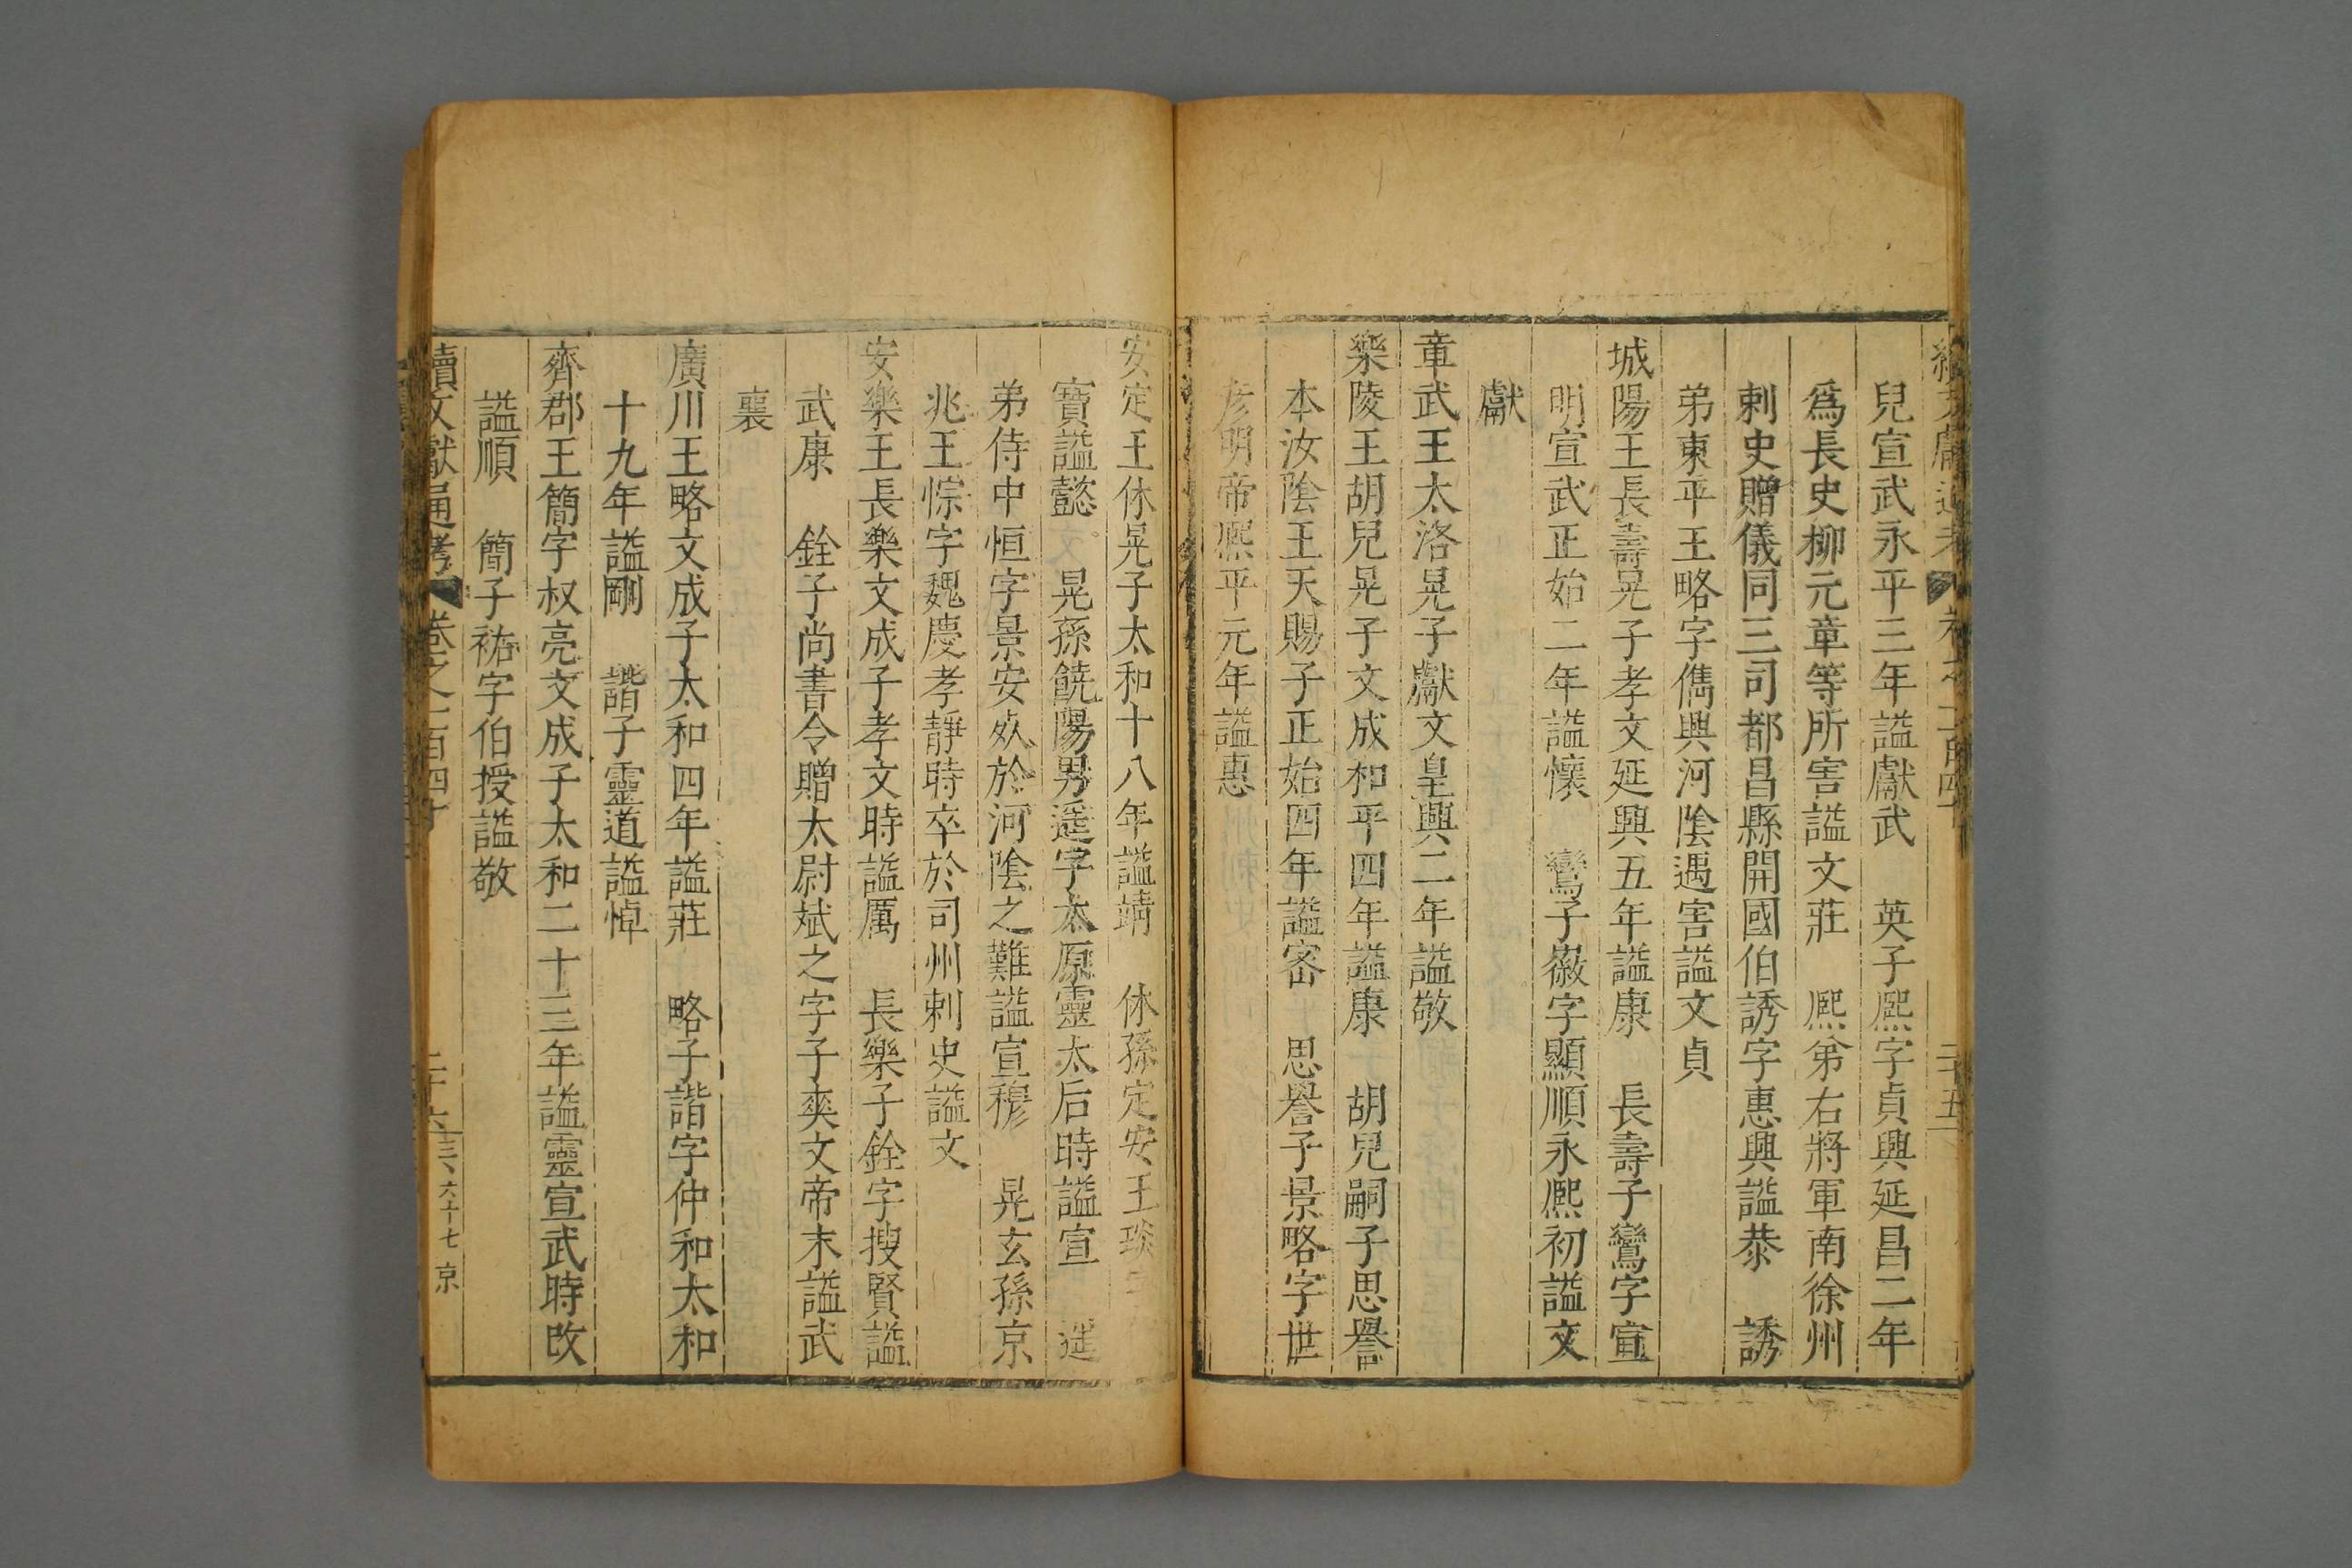 兒宣武永平三年謚獻武　英子熈字貞興延昌二年
爲長史柳元章等所害謚文莊　熈弟右將軍南徐州
刺史贈儀同三司都昌縣開國伯誘字惠興謚恭　誘
弟東平王略字儁興河陰遇害謚文貞
城陽王長壽晃子孝文延興五年謚康　長壽子鸞字宣
明宣武正始二年謚懷　鸞子徽字顯順永熈初謚文
獻
章武王太洛晃子獻文皇興二年謚敬
樂陵王胡兒晃子文成和平四年謚康　胡兒嗣子思譽
本汝陰王天賜子正始四年謚密　思譽子景略字世
彦明帝熈平元年謚惠
安定王休晃子太和十八年謚靖　休孫定安王琰字
寶謚懿　晃孫饒陽男遥字太原靈太后時謚宣　遥
弟侍中恒字景安歿於河陰之難謚宣穆　晃玄孫京
兆王悰字魏慶孝靜時卒於司州刺史謚文
安樂王長樂文成子孝文時謚厲　長樂子銓字搜賢謚
武康　銓子尚書令贈太尉斌之字子奭文帝末謚武
襄
廣川王略文成子太和四年謚莊　略子諧字仲和太和
十九年謚剛　諧子靈道謚悼
齊郡王簡字叔亮文成子太和二十三年謚靈宣武時改
謚順　簡子祐字伯授謚敬
續文獻通考　卷之一百四十　二十六　三、六十七　京